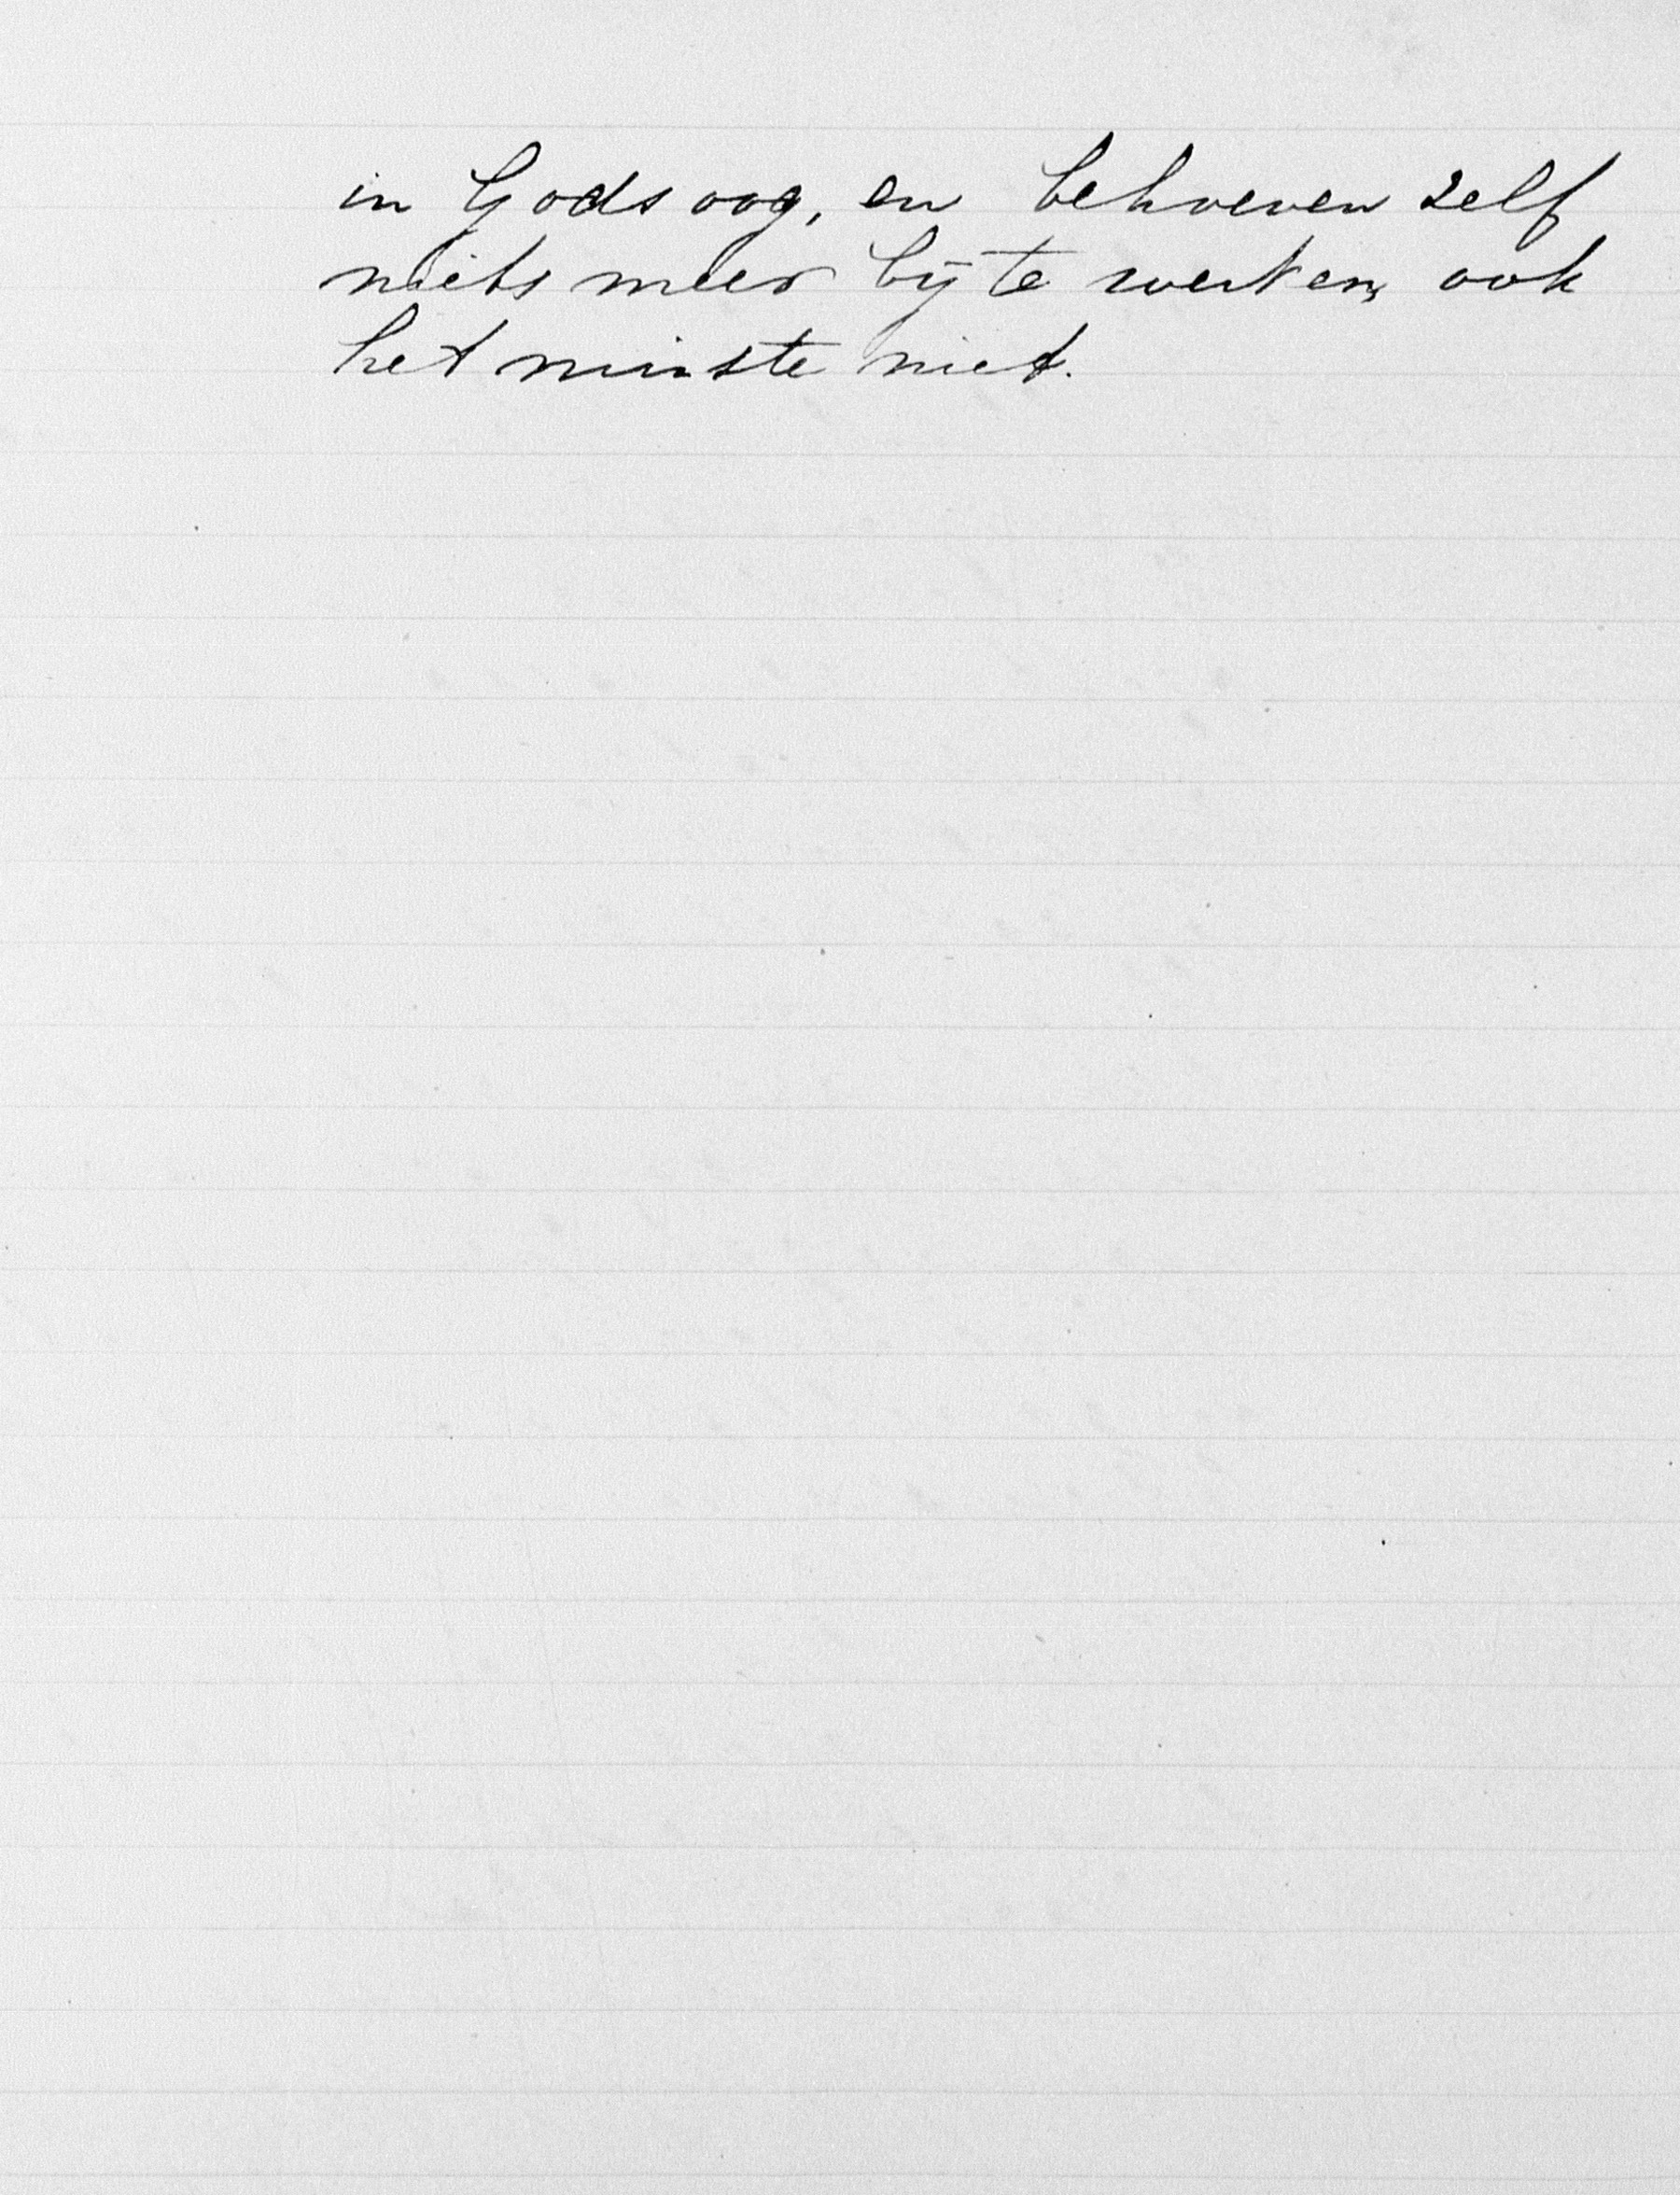 in Gods oog, en behoeven zelf
niets meer bij te werken, ook
het minste niet.